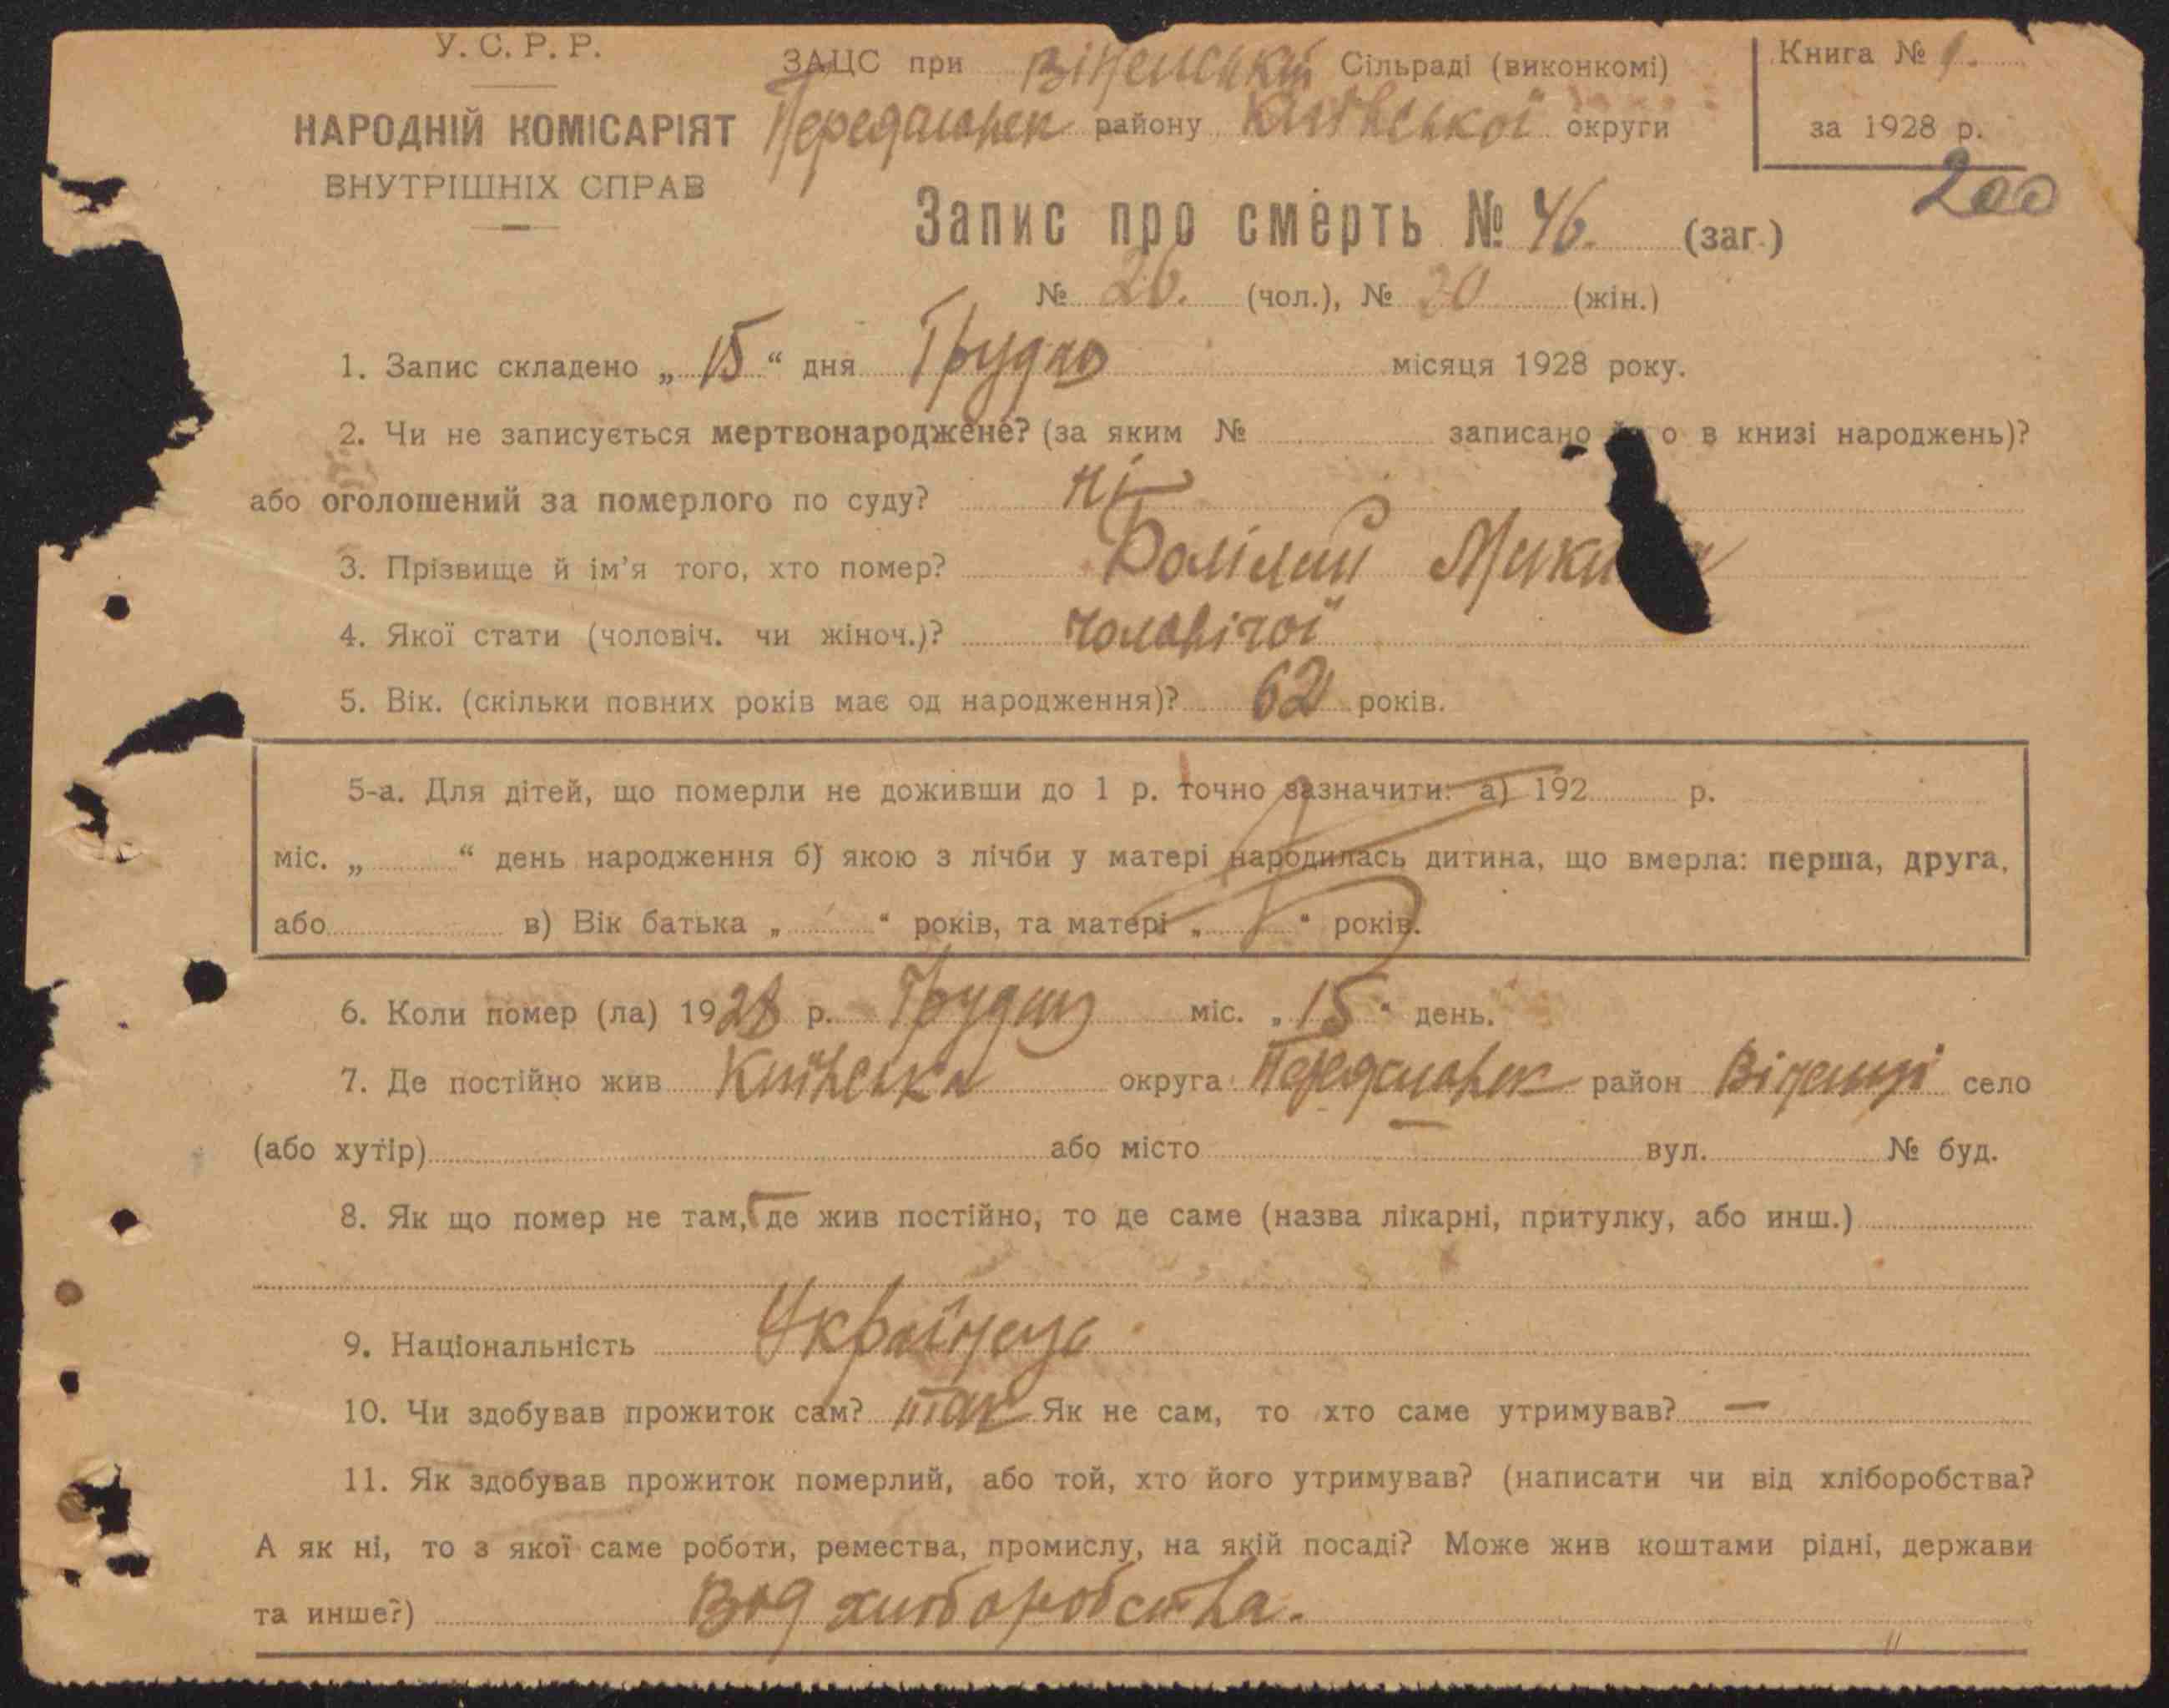 У. С. Р. Р.
НАРОДНІЙ КОМІСАРІЯТ
ВНУТРІШНІХ СПРАВ
ЗАЦС при Віненській Сільраді (виконкомі)
району Київської округи
Книга № 1.
за 1928 р.
200
Запис про смерть № 46. (заг.)
№ 26. (чол.), № 20 (жін.)
1. Запис складено „ 15 “ дня Грудня місяця 1928 року.
2. Чи не записується мертвонароджене? (за яким № записано його в книзі народжень)?
або оголошений за померлого по суду? ні
3. Прізвище й ім'я того, хто помер?
4. Якої стати (чоловіч. чи жіноч.)? чоловічої
5. Вік. (скільки повних років має од народження)? 62 років.
5-а. Для дітей, що померли не доживши до 1 р. точно зазначити: а) 192 р.
міс. „ “ день народження б) якою з лічби у матері народилась дитина, що вмерла: перша, друга,
або в) Вік батька „ “ років, та матері „ “ років.
6. Коли помер (ла) 1928 р. Грудня міс. „ 15 “ день.
7. Де постійно жив Київська округа район село
(або хутір) або місто вул. № буд.
8. Як що помер не там, де жив постійно, то де саме (назва лікарні, притулку, або инш.)
9. Національність Українець
10. Чи здобував прожиток сам? так Як не сам, то хто саме утримував? —
11. Як здобував прожиток померлий, або той, хто його утримував? (написати чи від хліборобства?
А як ні, то з якої саме роботи, ремества, промислу, на якій посаді? Може жив коштами рідні, держави
та инше?) Від хліборобства.